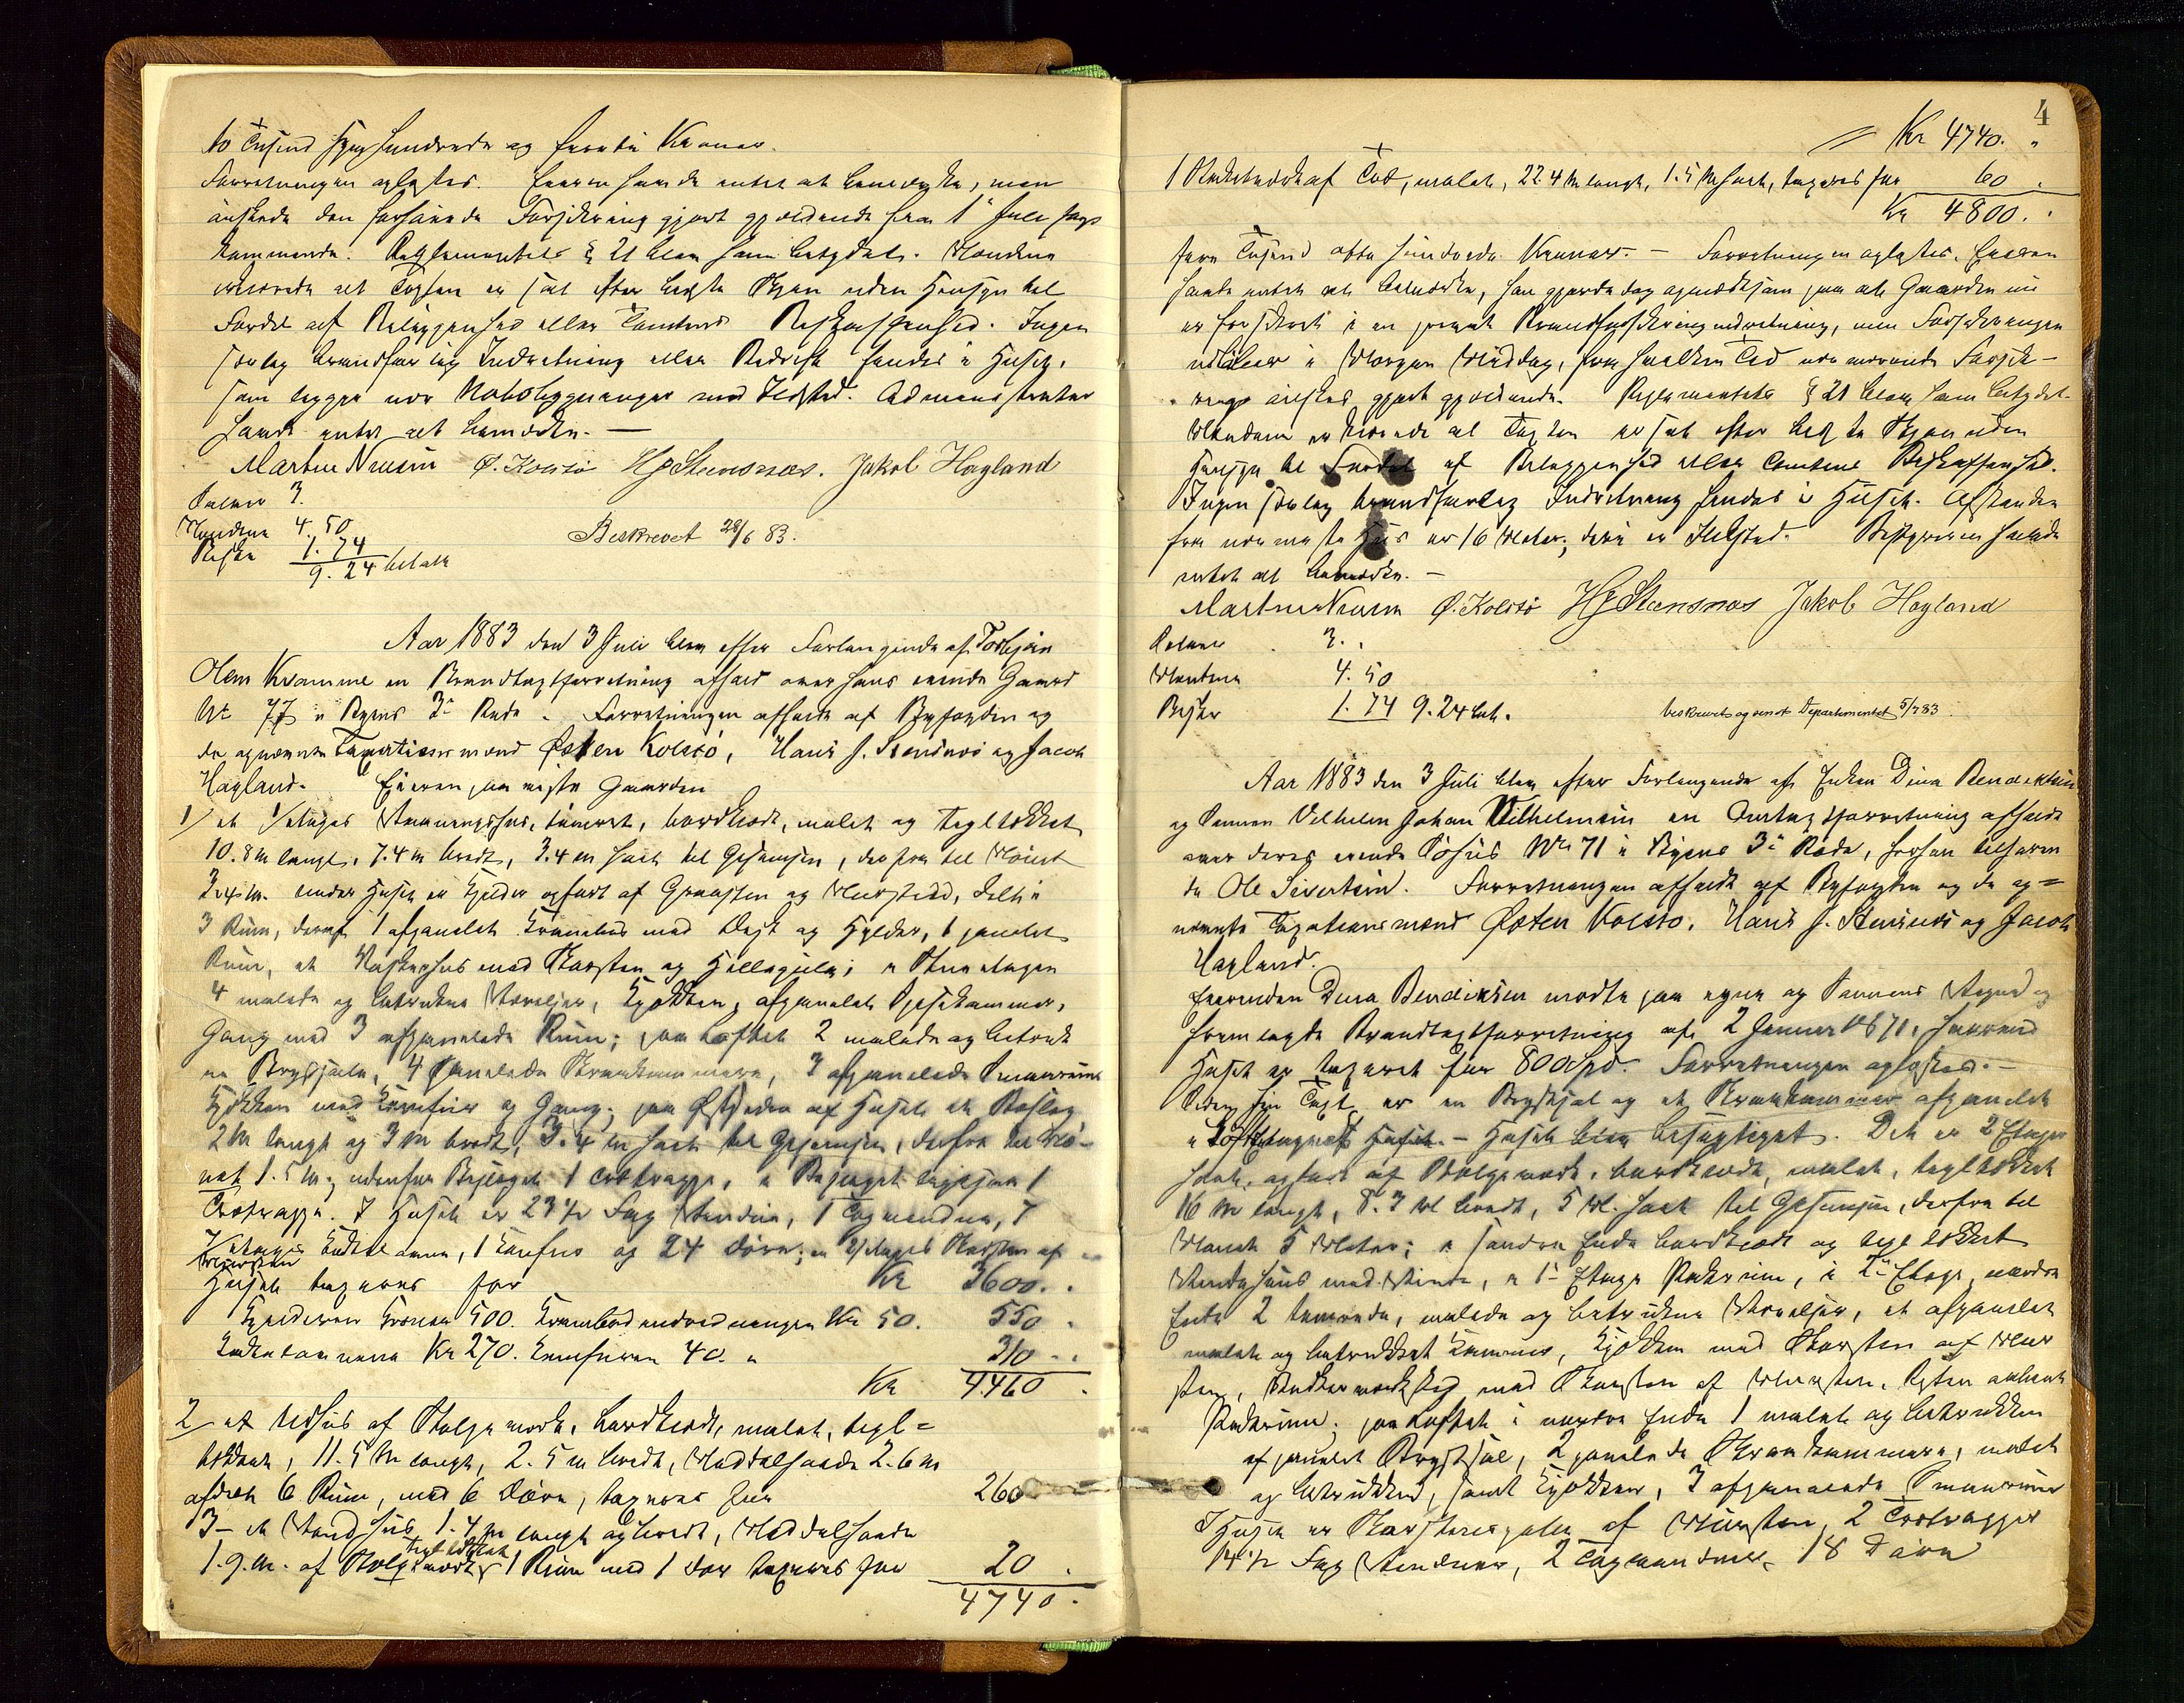 to Tusind Syv hundrede og førti Kroner.
Forretningen oplæstes. Eieren havde intet at bemærke, men
ønskede den forhøiede Forsikring gjort gjældende fra 1ste Juli først
kommende. Reglementets § 21 blev ham betydet. Mændene
erklærede at Taxten er sat efter bedste Skjøn uden Hensyn til
Fordel af Beliggenhed eller Tomtens Beskaffenhed. Ingen
særlig brandfarlig Indretning eller Bedrift findes i Huset,
som ligger nær Nabobygninger med Ildsted. Administrator
havde intet at bemærke. —
Martin Nilsen Ø. Kolstø HJStensnæs. Jakob Hagland
3.
Mændene 4. 50
Reise 1. 74
9. 24 betalt
Beskrevet 28/6 83.
Aar 1883 den 3 Juli blev efter Forlangende af Torbjørn
Olsen Kvamme en Brandtaxtforretning afholdt over hans eiende Gaard
No 77 i Byens 3die Rode. Forretningen afholdt af Byfogden og
de opnævnte Taxationsmænd Østen Kolstø, Hans J. Stensnæs og Jacob
Hagland. Eieren paaviste Gaarden
1/ et 1/etages Vaaningshus, tømret, bordklædt, malet og tegltækket
10.8 m langt, 7.4 m bredt, 3.4 m høit til Gesimsen, derfra til Mønet
3.4 m. under Huset en Kjelder opført af Graasten og Mursten, delt i
3 Rum, deraf 1 afpanelet Krambod med Disk og Hylder, 1 panelet
Rum, et Vaskerhus med Skorsten og i Stueetagen
4 malede og betrukne Værelser, Kjøkken, afpanelet Spisekammer,
Gang med 3 afpanelede Rum; paa Loftet 2 malede og betrukne
en Brystsale, 4 panelede Kramkammere, 3 afpanelede Smaarum
Kjøkken med Komfur og Gang; paa Østsiden af Huset et Bislag
2 M langt og 3 M bredt, 3.4 m høit til Gesimsen, derfra til Mø-
net 1.5 M; udenfor Bislaget 1 Trætrappe, i Bislaget ligesaa 1
Trætrappe. I Huset er 23 1/2 Fag Vinduer, 1 Tagvindue, 7
Kakkelovne, 1 Komfur og 24 Døre; en 2/etages Skorsten af
Mursten
Huset taxeres for Kr 3600. .
Kjelderen Kroner 500. Krambodindredningen Kr 50. 550 .
Kakkelovnene Kr 270. Komfuren 40. „ 310 . .
Kr 4460 .
2/ et Udhus af Stolpeværk, bordklædt, malet, tegl=
tækket, 11.5 M langt, 2.5 m bredt, Middelhøide 2.6 m
afdelt 6 Rum, med 6 Døre, taxeres for 260
3 – et Vandhus, 1.4 m langt og bredt, Middelhøide
tegltækket
1.9. M. af Stolpeværk, 1 Rum med 1 Dør taxeres for 20 .
4740 .
4
Kr 4740. „
1 Stakitværk af Træ, malet, 22.4 M langt, 1.5 M høit, taxeres for 60 .
Kr 4800. .
fire Tusind otte hundrede Kroner. — Forretningen oplæstes. Eieren
havde intet at bemærke, han gjorde dog opmærksom paa at Gaarden nu
er forsikret i en privat Brandforsikringindretning, men Forsikringen
udløber i Morgen Middag, fra hvilken Tid nærværende Forsik-
rings ønskes gjort gjældende. Reglementets § 21 blev ham betydet.
Mændene erklærede at Taxten er sat efter bedste Skjøn uden
Hensyn til Fordel af Beliggenhed eller Tomtens Beskaffenhed.
Ingen særlig brandfarlig Indretning findes i Huset. Afstanden
fra nærmeste Hus er 16 Meter, deri er Ildsted. Bestyreren havde
intet at bemærke. —
Martin Nilsen Ø. Kolstø HJStensnæs Jakob Hagland
3. .
Mændene 4. 50
Reise 1. 74 9.24 bet.
beskrevet og sendt Departementet 5/7 83.
Aar 1883 den 3 Juli blev efter Forlangende af Enken Dina Bendiktsen
og Sønnen Vilhelm Johan Vilhelmsen en Omtaxtforretning afholdt
over deres eiende Søhus No 71 i Byens 3die Rode, forhen tilhørende
Ole Sivertsen. Forretningen afholdt af Byfogden og de op=
nævnte Taxationsmænd Østen Kolstø, Hans J. Stensnæs og Jacob
Hagland.
Eierinden Dina Bendiksen mødte paa egne og Sønnens Vegne og
fremlagde Brandtaxtforretning af 2 Januar 1871, hvorved
Huset er taxeret for 800 Spd. Forretningen oplæstes. —
Siden sin Taxt er en Brystsal og et Kramkammer afpanelet
i Loftetagen — Huset blev besigtiget. Det er 2 Etager
høit, opført af Stolpeværk, bordklædt, malet, tegltækket
16 M langt, 8.3 M bredt, 5 M. høit til Gesimsen, derfra til
Mønet 5 Meter; i søndre Ende bordklædt og tegltækket
Vindehuus med Vinde, i 1ste Etage Pakrum, i 2den Etage, nordre
Ende 2 tømrede, malede og betrukne Værelser, et afpanelet
malet og betrukket Kammer, Kjøkken med Skorsten af Mur
sten, Bødkerværksted med Skorsten af Mursten,
Pakrum; paa Loftet i nordre Ende 1 malet og betrukken
afpanelet Brystsal, 2 panelede Kramkammere, malet
og betrukken, samt Kjøkken, 3 afpanelede Smaarum
I Huset er Skorstenspibe af Mursten, 2 Trætrapper
14 1/2 Fag Vinduer, 2 Tagvinduer, 18 Døre